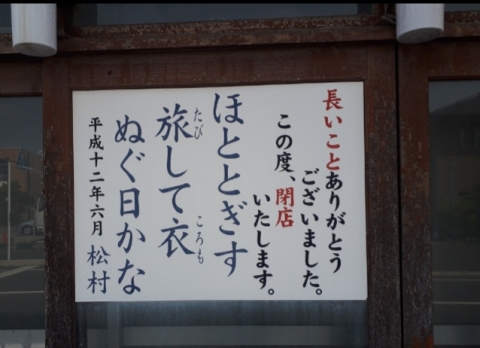 長いことありがとう
ございました。
この度、閉店
いたします。
ほととぎす
旅して衣
たび
ころも
ぬぐ日かな
平成十二年六月 松村